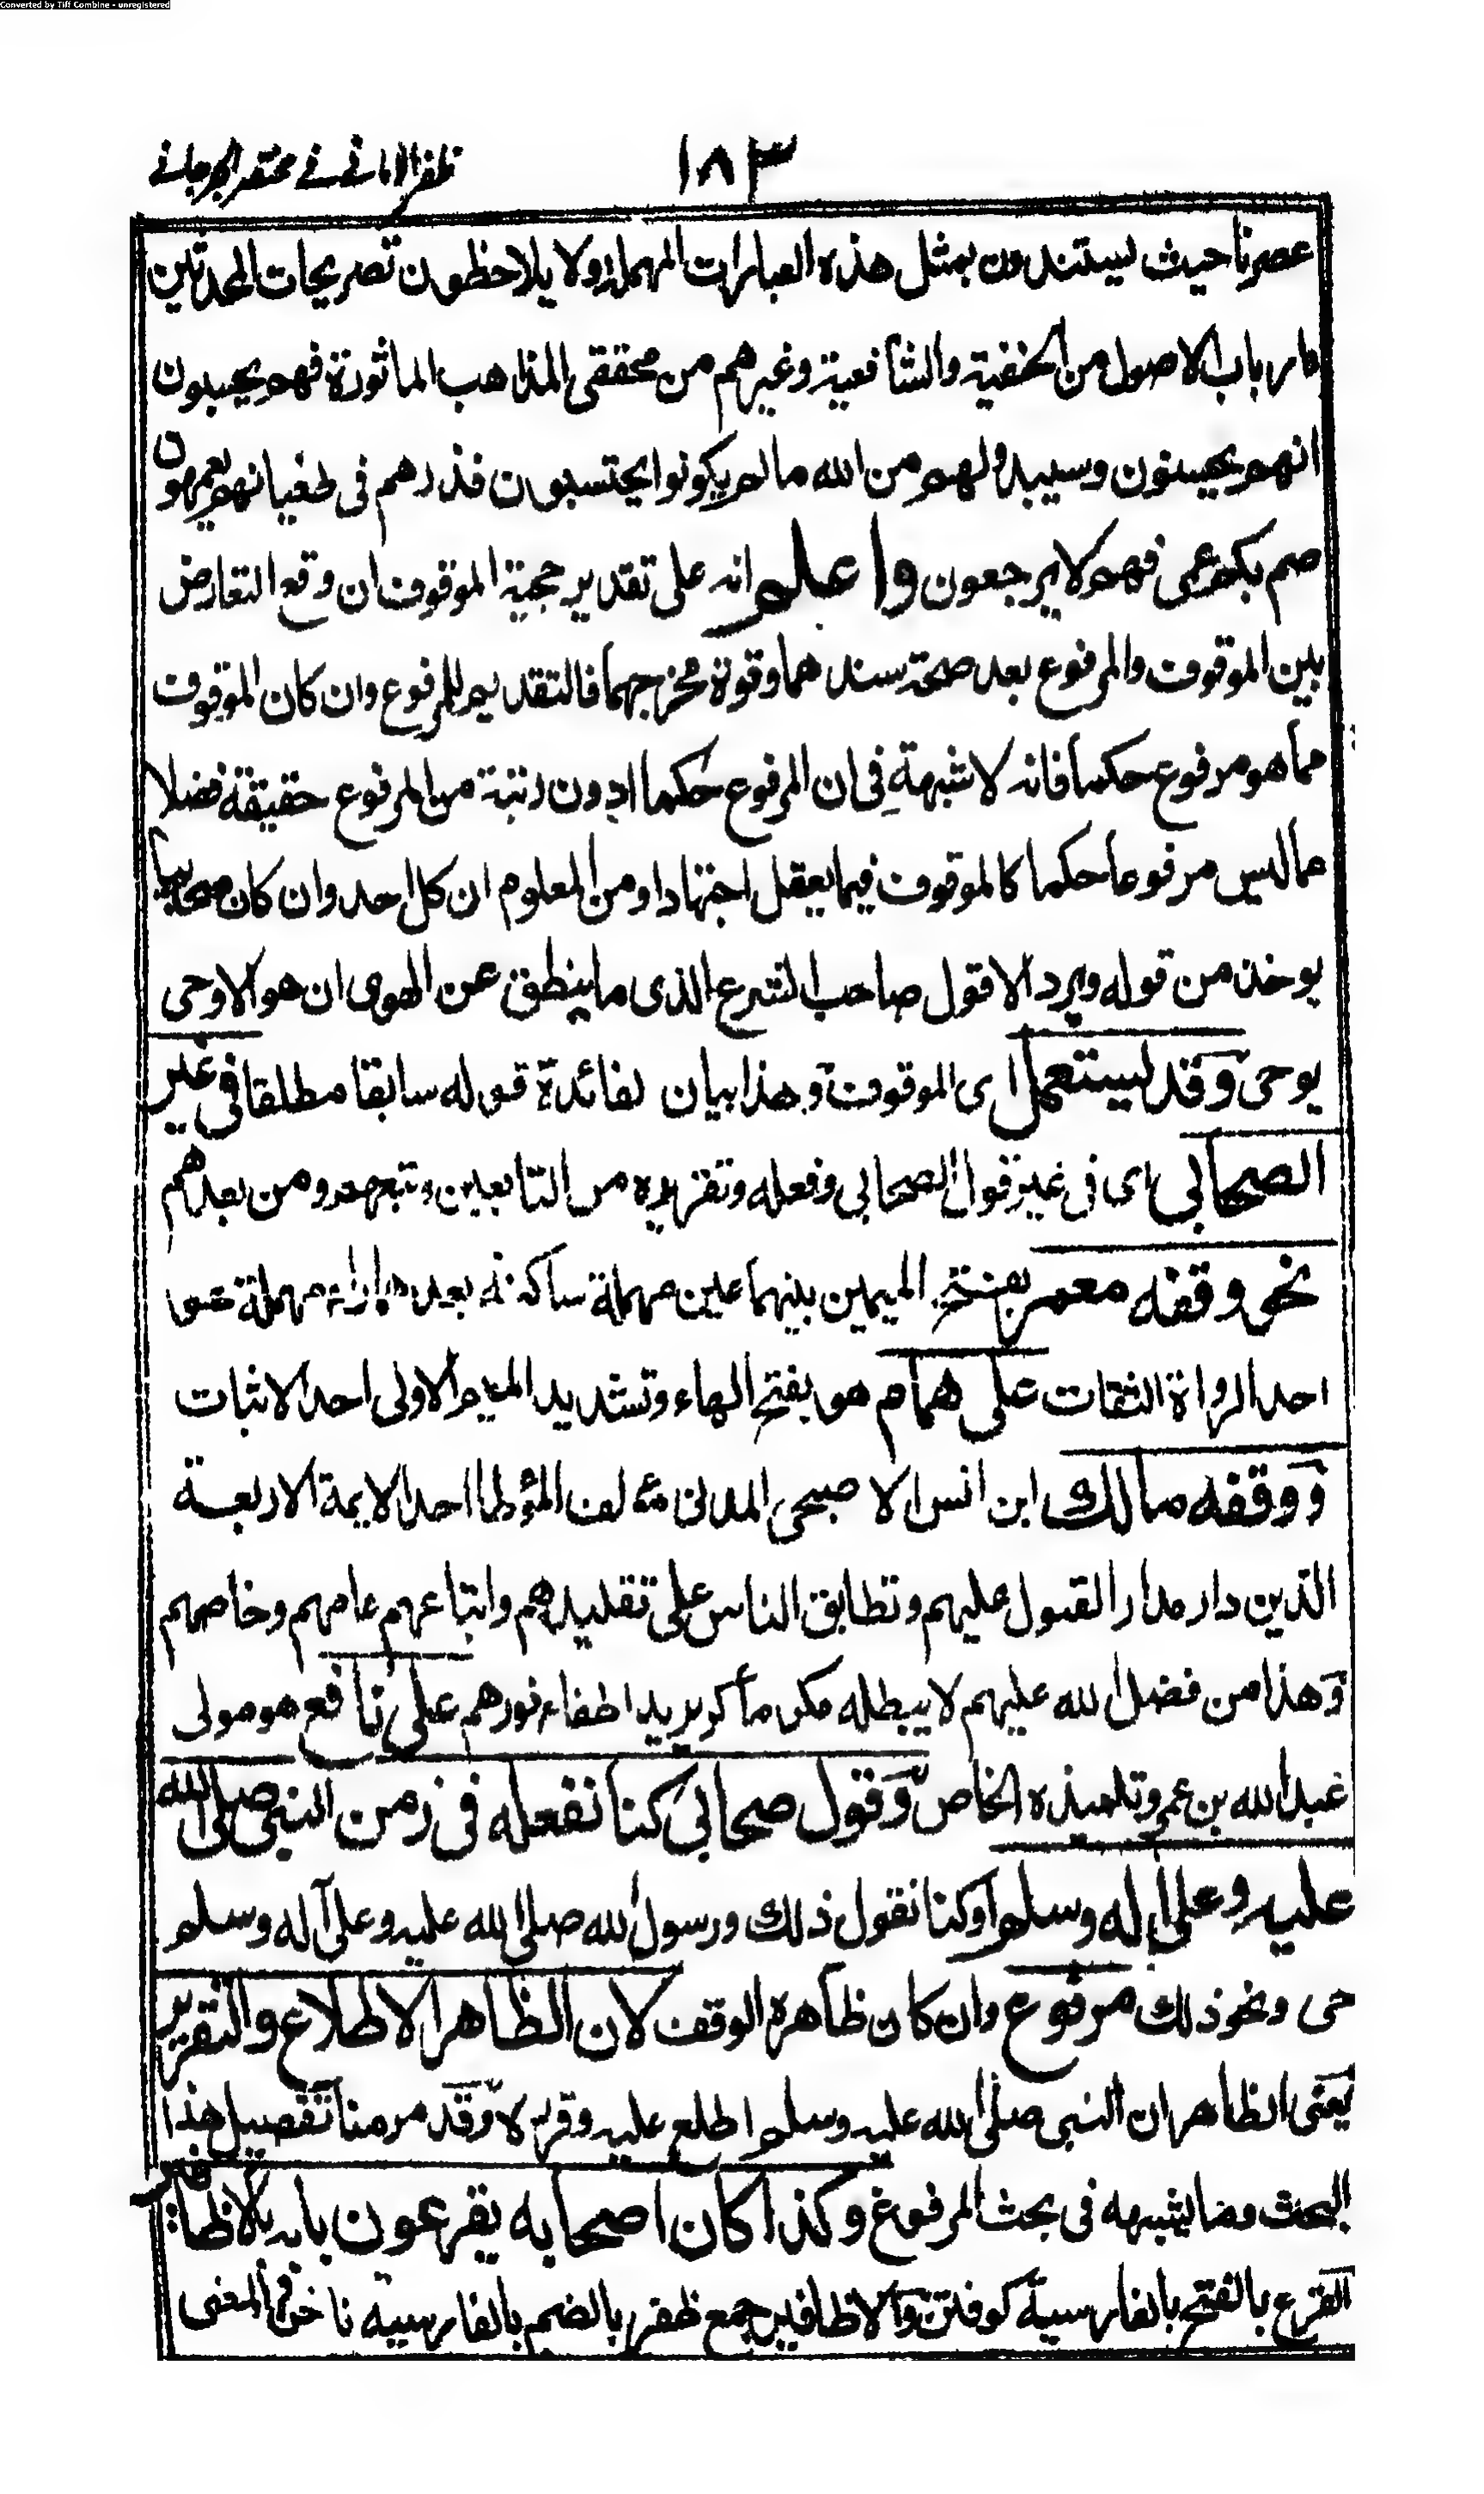 Converted by Tiff Combine - unregistered
١٨٣
ظفر الامانى فى مختصر الجرجانى
عصرنا حيث يستندون بمثل هذه العبارات المهملة ولا يلاحظون تصريحات المحدثين
وارباب الاصول من الحنفية والشافعية وغيرهم من محققى المذاهب الماثورة فهم يحسبون
انهم يحسنون وسيبدو لهم من الله ما لم يكونوا يحتسبون فذرهم فى طغيانهم يعمهون
صم بكم عمى فهم لا يرجعون واعلم انه على تقدير حجية الموقوف ان وقع التعارض
بين الموقوف والمرفوع بعد صحة سندهما وقوة مخرجهما فالتقديم للمرفوع وان كان الموقوف
مما هو مرفوع حكما فانه لا شبهة فى ان المرفوع حكما ادون رتبة من المرفوع حقيقة فضلا
عما ليس مرفوعا حكما كالموقوف فيما يعقل اجتهادا ومن المعلوم ان كل احد وان كان صحابيا
يوخذ من قوله ويرد الا قول صاحب الشرع الذى ما ينطق عن الهوى ان هو الا وحى
يوحى وقد يستعمل اى الموقوف وهذا بيان لفائدة قوله سابقا مطلقا فى غير
الصحابى اى فى غير قول الصحابى وفعله وتقريره من التابعين وتبعهم ومن بعدهم
نحو وقفه معمر بفتح الميمين بينهما عين مهملة ساكنة بعدهما راء مهملة هو
احد الرواة الثقات على همام هو بفتح الهاء وتشديد الميم الاولى احد الاثبات
ووقفه مالك ابن انس الاصبحى المدنى مؤلف المؤطا احد الايمة الاربعة
الذين دار مدار القبول عليهم وتطابق الناس على تقليدهم واتباعهم عامهم وخاصهم
وهذا من فضل الله عليهم لا يبطله مكر ماكر يريد اطفاء نورهم على نافع هو مولى
عبد الله بن عمر وتلميذه الخاص وقول صحابى كنا نفعله فى زمن النبى صلى الله
عليه وعلى اله وسلم او كنا نقول ذلك ورسول الله صلى الله عليه وعلى آله وسلم
حى ونحو ذلك مرفوع وان كان ظاهره الوقف لان الظاهر الاطلاع والتقرير
يعنى الظاهر ان النبى صلى الله عليه وسلم اطلع عليه وقرره وقد مر منا تفصيل هذا
البحث وما يشبهه فى بحث المرفوع وكذا كان اصحابه يقرعون بابه بالاظافير
القرع بالفتح بالفارسية كوفتن والاظافير جمع ظفر بالضم بالفارسية ناخن والمعنى